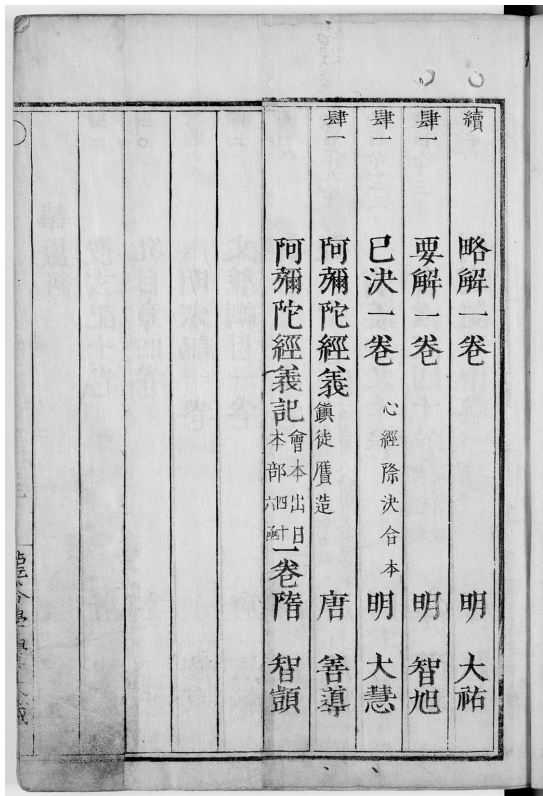 續 略解一卷 明 大祐
肆一 要解一卷 明 智旭
肆一 已決一卷 心經際決合本 明 大慧
肆一 阿彌陀經義 鎮徒贗造 唐 善導
阿彌陀經義記 會本出日本部四十六函 一卷 隋 智顗